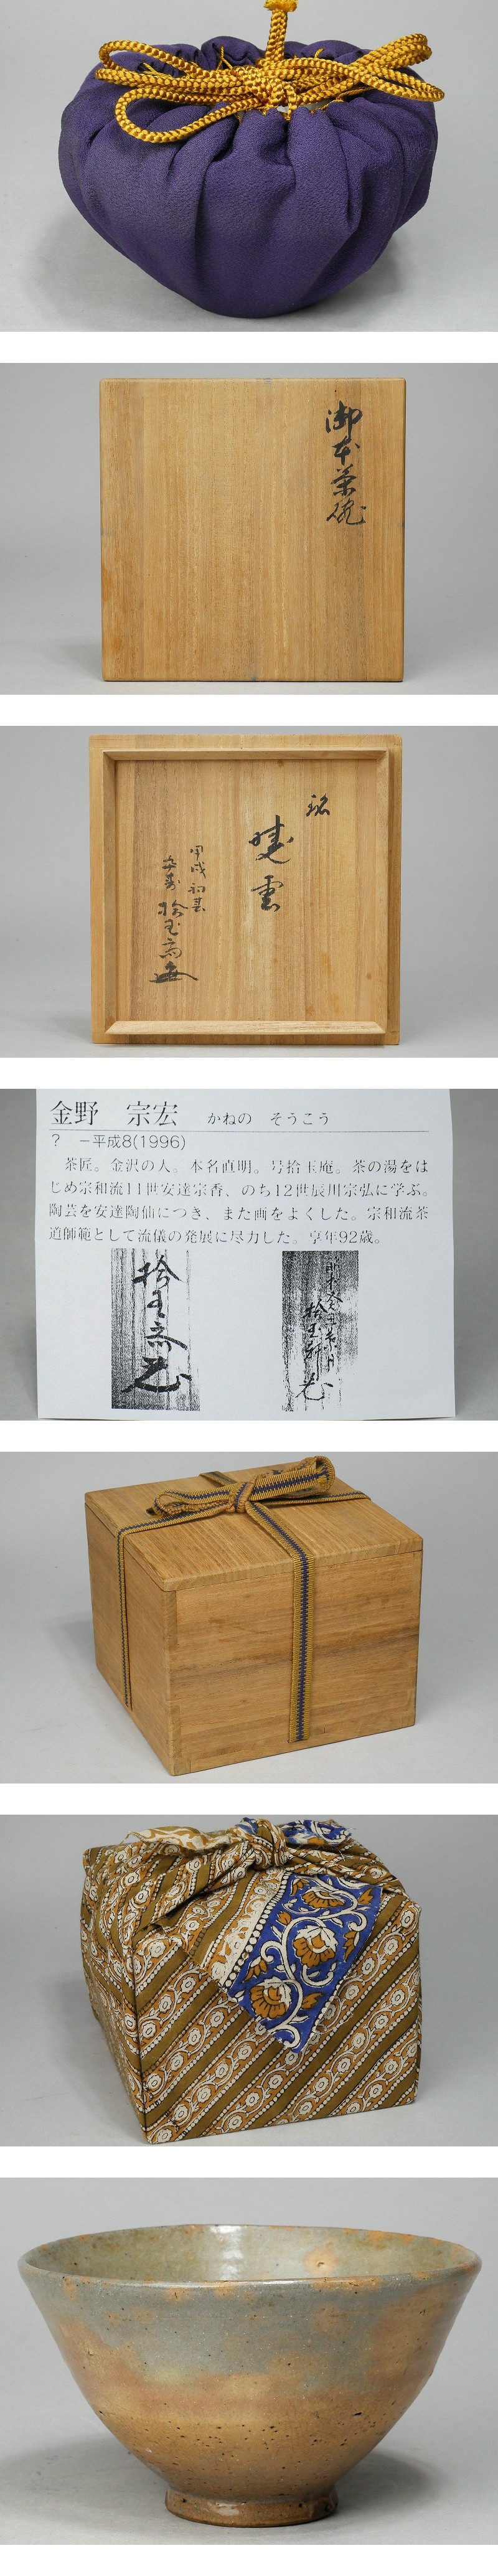 御本茶碗
銘
曉雲
甲戌初春
卒寿 拾玉斎
金野 宗宏 かねの そうこう
? −平成8(1996)
茶匠。金沢の人。本名直明。号拾玉庵。茶の湯をは
じめ宗和流11世安達宗香、のち12世辰川宗弘に学ぶ。
陶芸を安達陶仙につき、また画をよくした。宗和流茶
道師範として流儀の発展に尽力した。享年92歳。
拾玉斎
拾玉軒